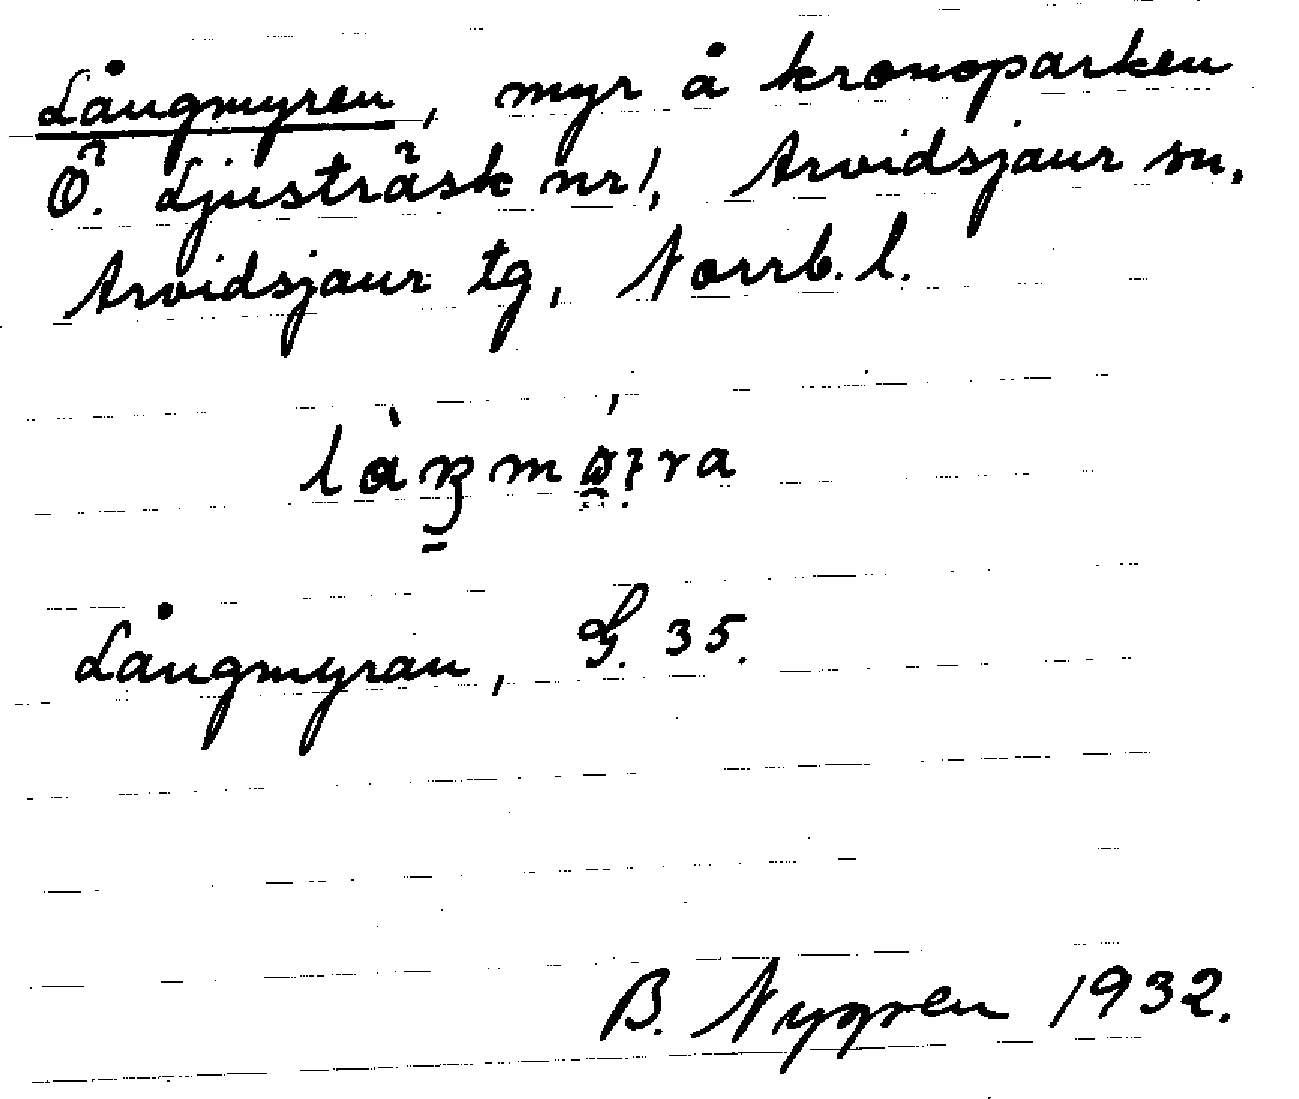 Långmyren, myr å kronoparken
Ö. Ljusträsk nr 1, Arvidsjaur sn,
Arvidsjaur tg, Norrb. l.
Långmyran, G. 35.
B. Nygren 1932.